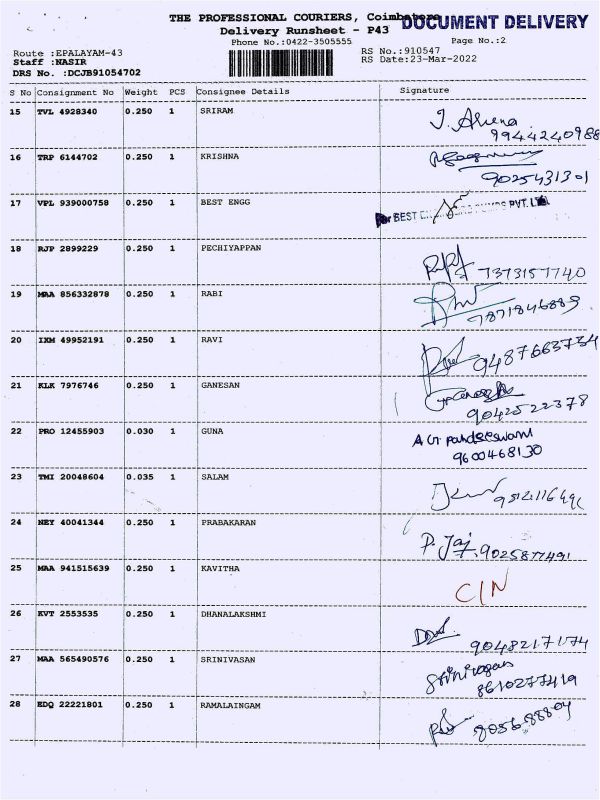 THE PROFESSIONAL COURIERS, Coimbatore
DOCUMENT DELIVERY
Delivery Runsheet - P43
Phone No.:0422-3505555
Page No.:2
Route :EPALAYAM-43
RS No.:910547
Staff :NASIR
RS Date:23-Mar-2022
DRS No. :DCJB91054702
S No Consignment No Weight PCS Consignee Details Signature
15 TVL 4928340 0.250 1 SRIRAM
9944240988
16 TRP 6144702 0.250 1 KRISHNA
9025431301
17 VPL 939000758 0.250 1 BEST ENGG
For BEST PVT. LTD
18 RJP 2899229 0.250 1 PECHIYAPPAN
7373157740
19 MAA 856332878 0.250 1 RABI
9871846889
20 IXM 49952191 0.250 1 RAVI
9487663734
21 KLK 7976746 0.250 1 GANESAN
9042522378
22 PRO 12455903 0.030 1 GUNA
A G Pandeeswari
9600468130
23 TMI 20048604 0.035 1 SALAM
24 NEY 40041344 0.250 1 PRABAKARAN
P. Jaj
9025877491
25 MAA 941515639 0.250 1 KAVITHA
C/N
26 KVT 2553535 0.250 1 DHANALAKSHMI
9048217174
27 MAA 565490576 0.250 1 SRINIVASAN
Srinivasan
8610277419
28 EDQ 22221801 0.250 1 RAMALAINGAM